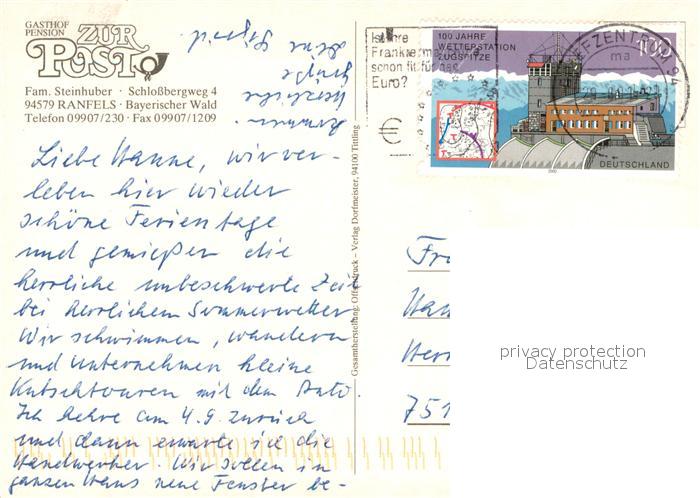 GASTHOF
PENSION
ZUR
POST
Fam. Steinhuber · Schloßbergweg 4
94579 RANFELS · Bayerischer Wald
Telefon 09907/230 · Fax 09907/1209
Liebe Hanne, wir ver-
leben hier wieder
schöne Ferientage
und genießen die
herrliche unbeschwerte Zeit
bei herrlichem Sommerwetter.
Wir schwimmen, wandern
und unternehmen kleine
Kutschtouren mit dem Auto.
Ich kehre am 4.9. zurück
und dann erwarte ich die
Handwerker. Wir sollen im
ganzen Haus neue Fenster be-
kommen.
Herzliche
Grüße
Deine
Gesamtherstellung: Offsetdruck – Verlag Dorfmeister, 94100 Tittling
Ist Ihre
Frankierma
schon fit für den
Euro?
BRIEFZENTRUM 94
ma
100 JAHRE
WETTERSTATION
ZUGSPITZE
100
DEUTSCHLAND
2000
Fr
Han
Her
751
privacy protection
Datenschutz